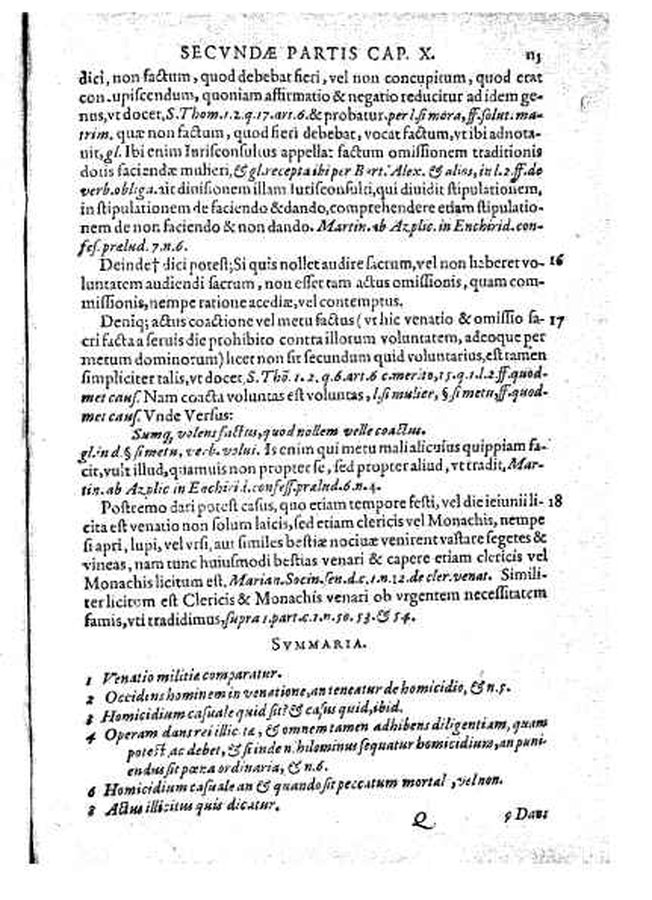 SECVNDÆ PARTIS CAP. X. 113
dici, non factum, quod debebat fieri, vel non concupitum, quod erat
concupiscendum, quoniam affirmatio & negatio reducitur ad idem ge-
nus, vt docet, S. Thom. 1. 2. q. 17. art. 6. & probatur. per l. si mora, ff. solut. ma-
trim. quæ non factum, quod fieri debebat, vocat factum, vt ibi adnota-
uit, gl. Ibi enim Iurisconsultus appellat factum omissionem traditionis
dotis faciendæ mulieri, & gl. recepta ibi per Bart. Alex. & alios, in l. 2. ff. de
verb. obliga. ait diuisionem illam Iurisconsulti, qui diuidit stipulationem,
in stipulationem de faciendo & dando, comprehendere etiam stipulatio-
nem de non faciendo & non dando. Martin. ab Azplic. in Enchirid. con-
fes. prælud. 7. n. 6.
Deinde† dici potest; Si quis nollet audire sacrum, vel non haberet vo- 16
luntatem audiendi sacrum, non esset tam actus omissionis, quam com-
missionis, nempe ratione acediæ, vel contemptus.
Deniq; actus coactione vel metu factus (vt hic venatio & omissio sa- 17
cri facta a seruis die prohibito contra illorum voluntatem, adeoque per
metum dominorum) licet non sit secundum quid voluntarius, est tamen
simpliciter talis, vt docet, S. Thõ. 1. 2. q. 6. art. 6 c. merito, 15. q. 1. l. 2. ff. quod-
met caus. Nam coacta voluntas est voluntas, l. si mulier, § si metu, ff. quod-
met caus. Vnde Versus:
Sumq, volens factus, quod nollem velle coactus.
gl. in d. § si metu, verb. volui. Is enim qui metu mali alicuius quippiam fa-
cit, vult illud, quamuis non propter se, sed propter aliud, vt tradit, Mar-
tin. ab Azplic in Enchirid. confess. prælud. 6. n. 4.
Postremo dari potest casus, quo etiam tempore festi, vel die ieiunii li- 18
cita est venatio non solum laicis, sed etiam clericis vel Monachis, nempe
si apri, lupi, vel vrsi, aut similes bestiæ nociuæ venirent vastare segetes &
vineas, nam tunc huiusmodi bestias venari & capere etiam clericis vel
Monachis licitum est, Marian. Socin. sen. d. c. 1. n. 12. de cler. venat. Simili-
ter licitum est Clericis & Monachis venari ob vrgentem necessitatem
famis, vti tradidimus, supra 1. part. c. 1. n. 50. 53. & 54.
SVMMARIA.
1 Venatio militiæ comparatur.
2 Occidens hominem in venatione, an teneatur de homicidio, & n. 5.
3 Homicidium casuale quid sit? & casus quid, ibid.
4 Operam dans rei illicitæ, & omnem tamen adhibens diligentiam, quam
potest, ac debet, & si inde nihilominus sequatur homicidium, an puni-
endus sit pœna ordinaria, & n. 6.
6 Homicidium casuale an & quando sit peccatum mortal, vel non.
8 Actus illicitus quis dicatur.
Q 9 Dans